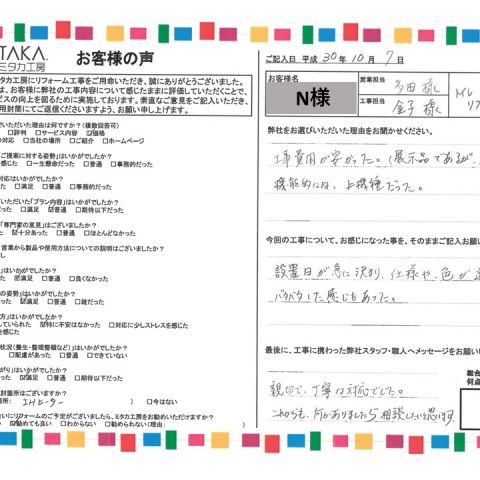 TAKA
ミタカ工房
お客様の声
ミタカ工房にリフォーム工事をご用命いただき、誠にありがとうございました。
は、工事の内容について感じたままに評価していただくことで、
ビスの向上を図るために実施しております。素直なご意見をご記入いただき、
用封筒にてご返信くださいますよう、お願い申し上げます。
ただいた理由は何ですか？(複数回答可)
□評判 □サービス内容 ☑価格
対応 □当社の場所 □ご紹介 □ホームページ
ご提案に対する姿勢」はいかがでしたか？
感じた □一生懸命だった ☑普通 □事務的だった
対応はいかがでしたか？
□満足 ☑普通 □事務的だった
いただいた「プラン内容」はいかがでしたか？
った ☑満足 □普通 □期待以下だった
「専門家の意見」はいかがでしたか？
た ☑十分あった □普通 □ほとんどなかった
営業から製品や使用方法についての説明はございましたか？
」はいかがでしたか？
った ☑満足 □普通 □良くなかった
の姿勢」はいかがでしたか？
った ☑満足 □普通 □雑だった
方」はいかがでしたか？
していられた ☑特に不安はなかった □対応に少しストレスを感じた
状況(養生・整理整頓など)」はいかがでしたか？
□配慮があった □普通 □できていない
がり」はいかがでしたか？
った ☑満足 □普通 □期待以下だった
討箇所はございますか？
□今はない
いにリフォームのご予定がございましたら、ミタカ工房をお勧めいただけますか？
☑勧めても良い □わからない □勧められない(理由：
ご記入日 平成 30年 10月 7日
お客様名
N様
営業担当 多田様
工事担当 金子様
トイレ
リフ
弊社をお選びいただいた理由をお聞かせください。
工事費用が安かった。(展示品であるが、
機能的には、上機種だった。
今回の工事について、お感じになった事を、そのままご記入お願い
設置日が急に決り、仕様や、色が
バタバタした感じもあった。
最後に、工事に携わった弊社スタッフ・職人へメッセージをお願い
総合
何点
親切で、丁寧な対応でした。
これからも、何かありましたら相談したいと思います。